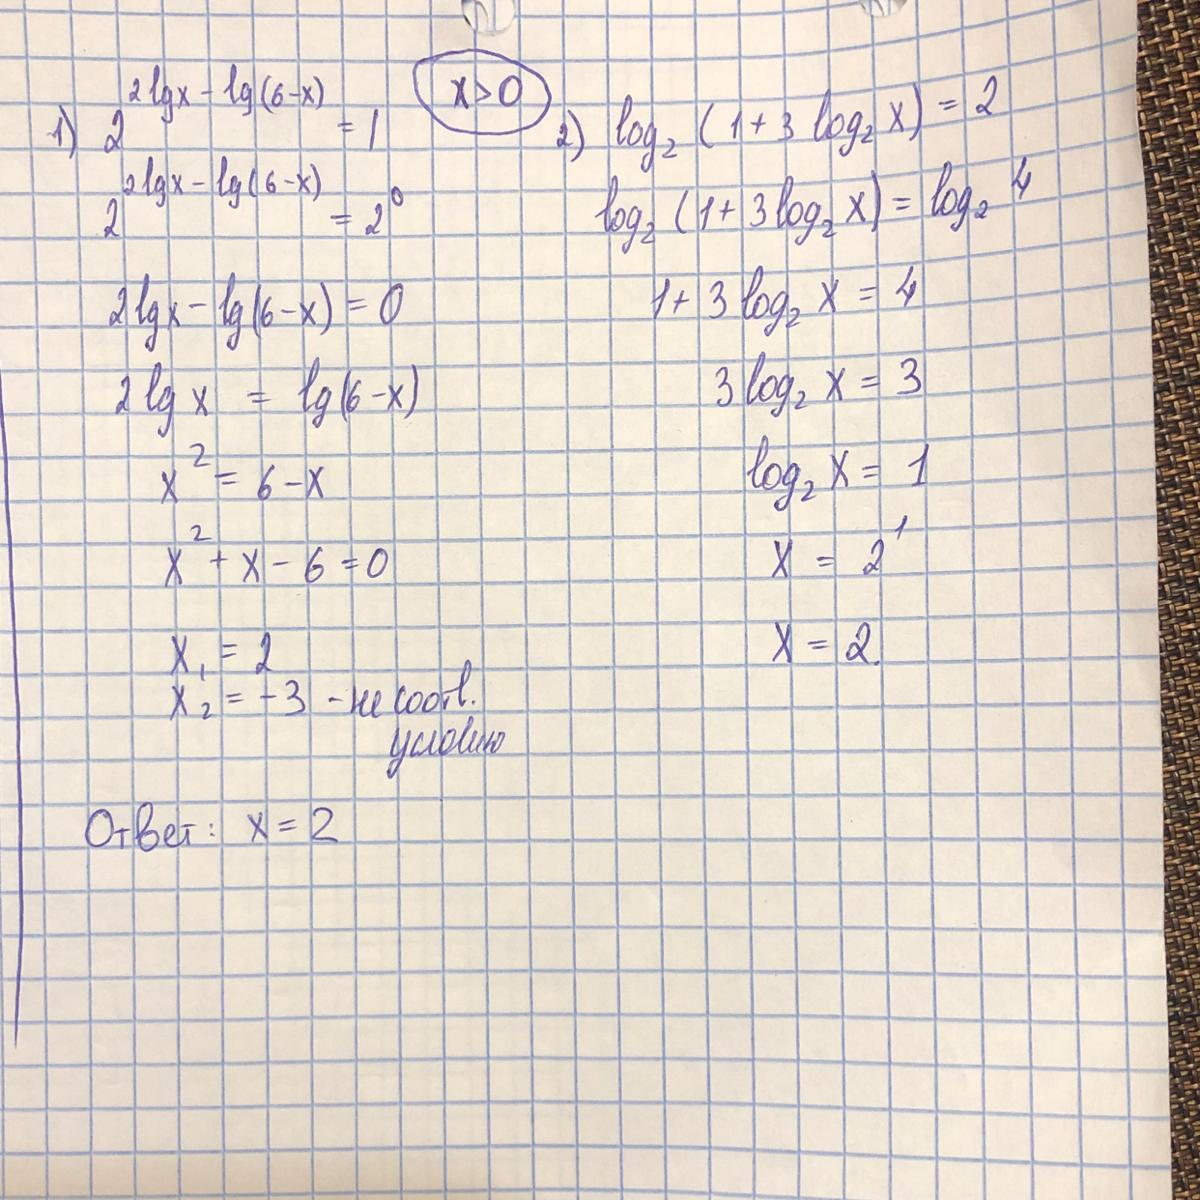 1) 2^(2lgx – lg(6–x)) = 1
x > 0
2^(2lgx – lg(6–x)) = 2⁰
2lgx – lg(6–x) = 0
2lgx = lg(6–x)
x² = 6–x
x² + x – 6 = 0
x₁ = 2
x₂ = –3 – не соотв.
условию
Ответ: x = 2
2) log₂(1+3log₂x) = 2
log₂(1+3log₂x) = log₂4
1+3log₂x = 4
3log₂x = 3
log₂x = 1
x = 2¹
x = 2.